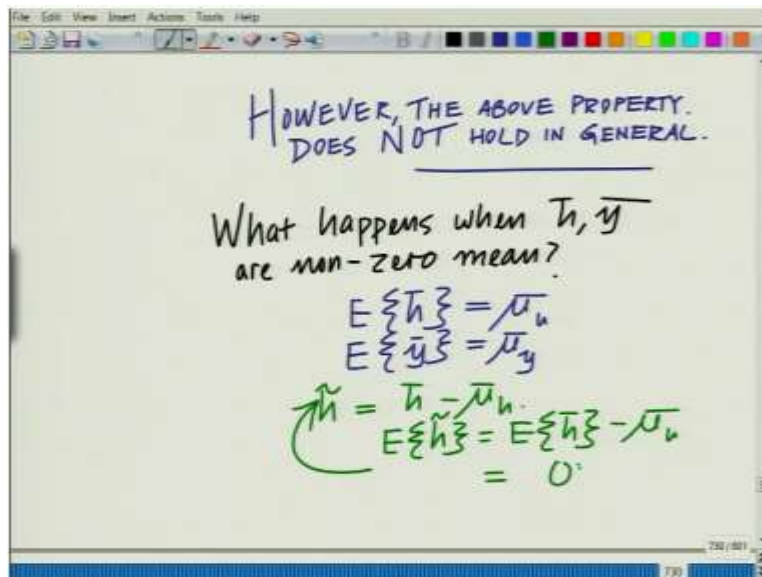 File Edit View Insert Actions Tools Help
HOWEVER, THE ABOVE PROPERTY.
DOES NOT HOLD IN GENERAL.
What happens when h̅, y̅
are non-zero mean?
E{h̅} = μ̅ₕ
E{y̅} = μ̅y
h̃ = h̅ - μ̅ₕ.
E{h̃} = E{h̅} - μ̅ₕ
= 0
730